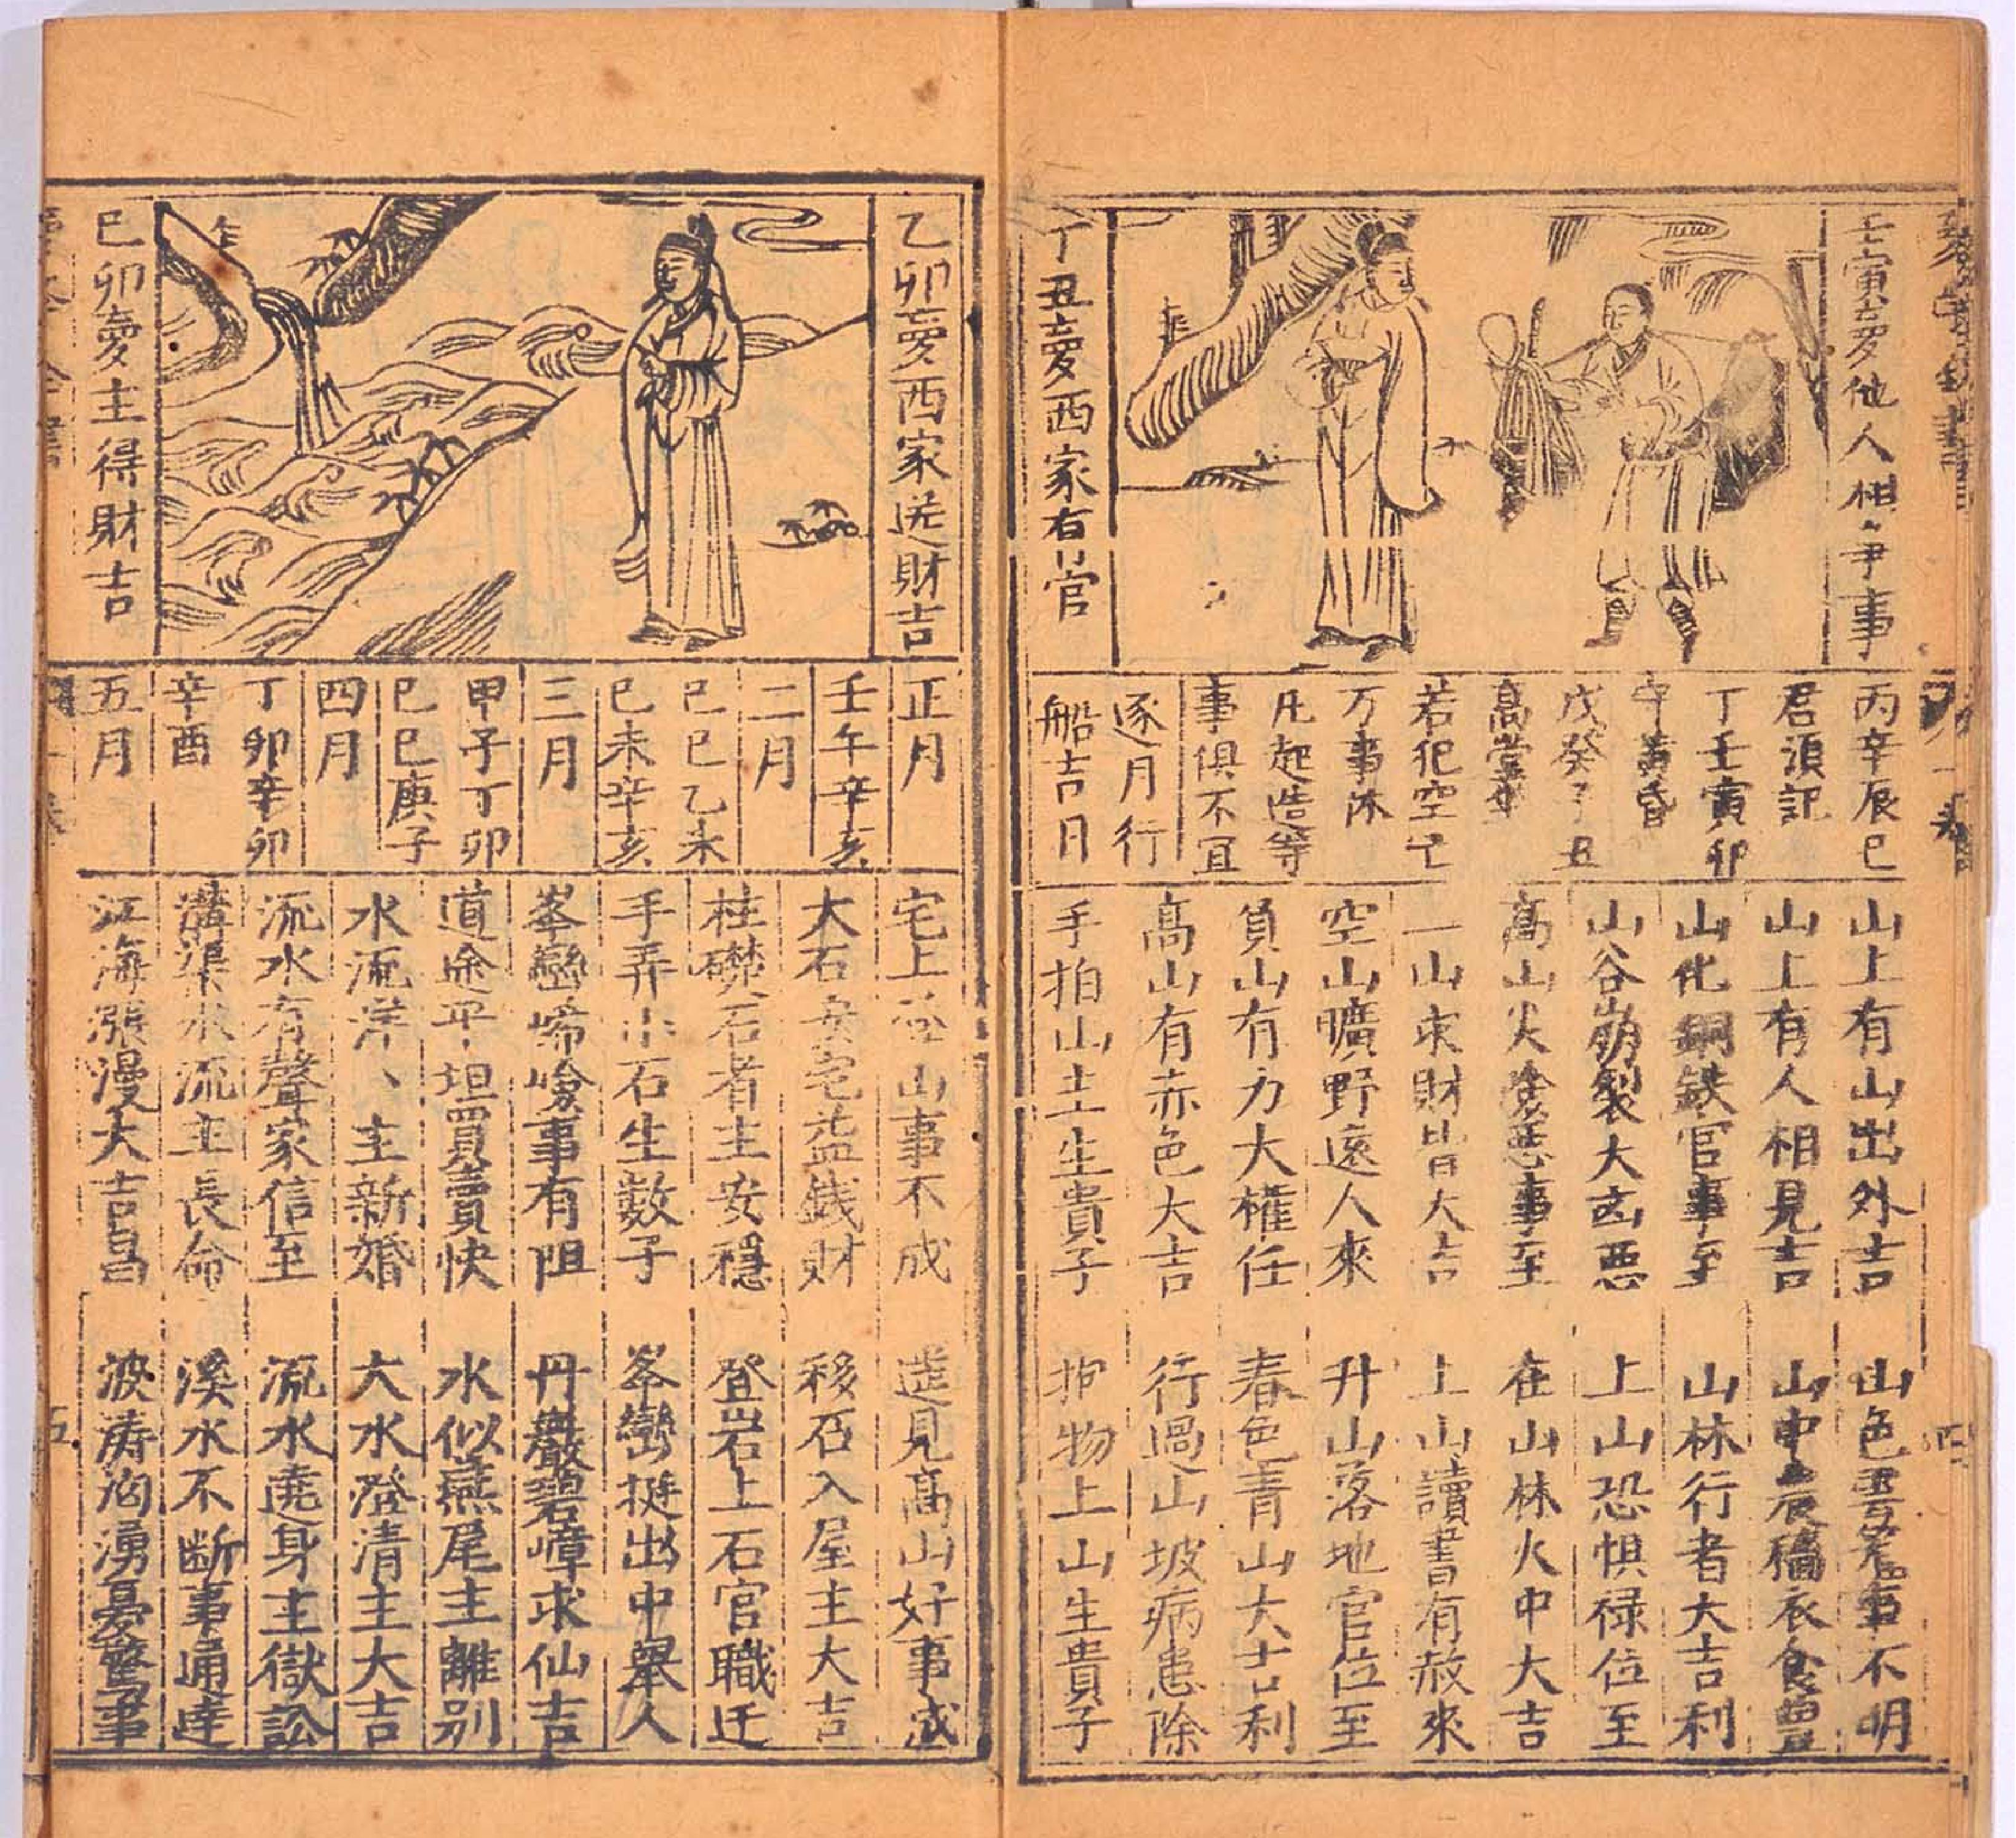 壬寅夢他人相爭事
丁丑夢西家有官
丙辛辰巳
君須記
丁壬寅卯
午黃昏
戊癸子丑
高堂
若犯空亡
万事休
凡起造等
事俱不宜
逐月行
船吉月
山上有山出外吉
山上有人相見吉
山化銅鉄官事至
山谷崩裂大凶悪
高山火 悪事至
一山束財皆大吉
空山曠野遠人來
負山有力大權任
高山有赤色大吉
手拍山土生貴子
山色雲 事不明
山中 稿衣食豊
山林行者大吉利
上山恐惧禄位至
在山林火中大吉
上山讀書有赦來
升山落地官位至
春色青山大吉利
行過山坡病患除
抱物上山生貴子
四
乙卯夢西家送財吉
巳卯夢主得財吉
正月
壬午辛亥
二月
巳巳乙未
巳未辛亥
三月
甲子丁卯
巳巳庚子
四月
丁卯辛卯
辛酉
五月
宅上 山事不成
大石安宅益銭財
柱礎石者主安穩
手弄小石生數子
峯巒崎嶮事有阻
道途平坦買賣快
水流洋〻主新婚
流水有聲家信至
溝渠水流主長命
江海漲漫大吉昌
遥見高山好事成
移石入屋主大吉
登岩上石官職迁
峯巒挺出中舉人
丹巖碧嶂求仙吉
水似燕尾主離别
大水澄清主大吉
流水遶身主獄訟
溪水不断事通達
波涛洶湧憂驚事
五